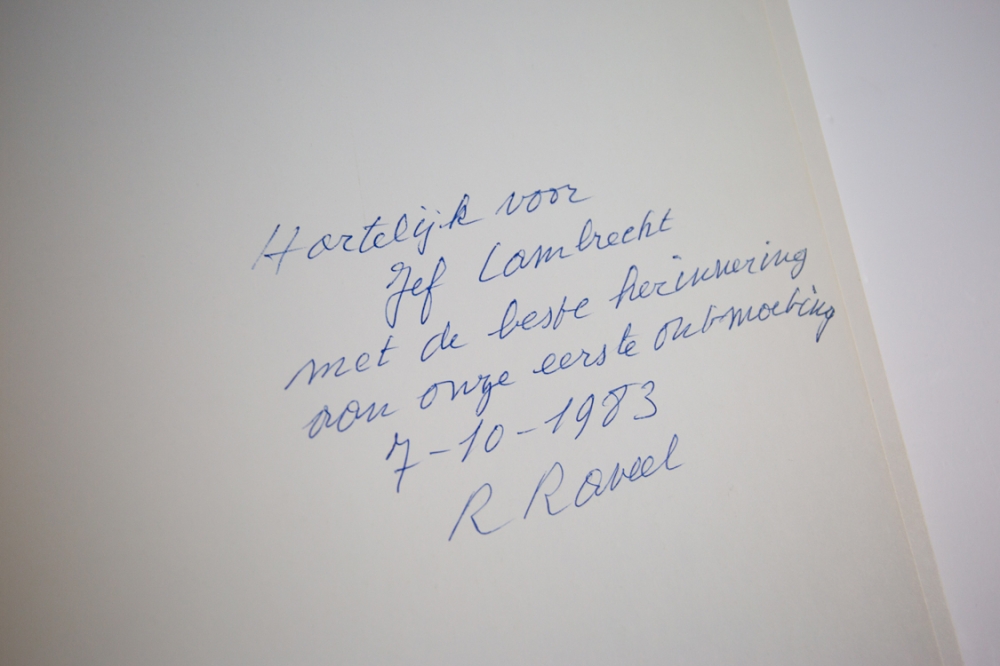 Hartelijk voor
Jef Lambrecht
met de beste herinnering
aan onze eerste ontmoeting
7-10-1983
R Raveel